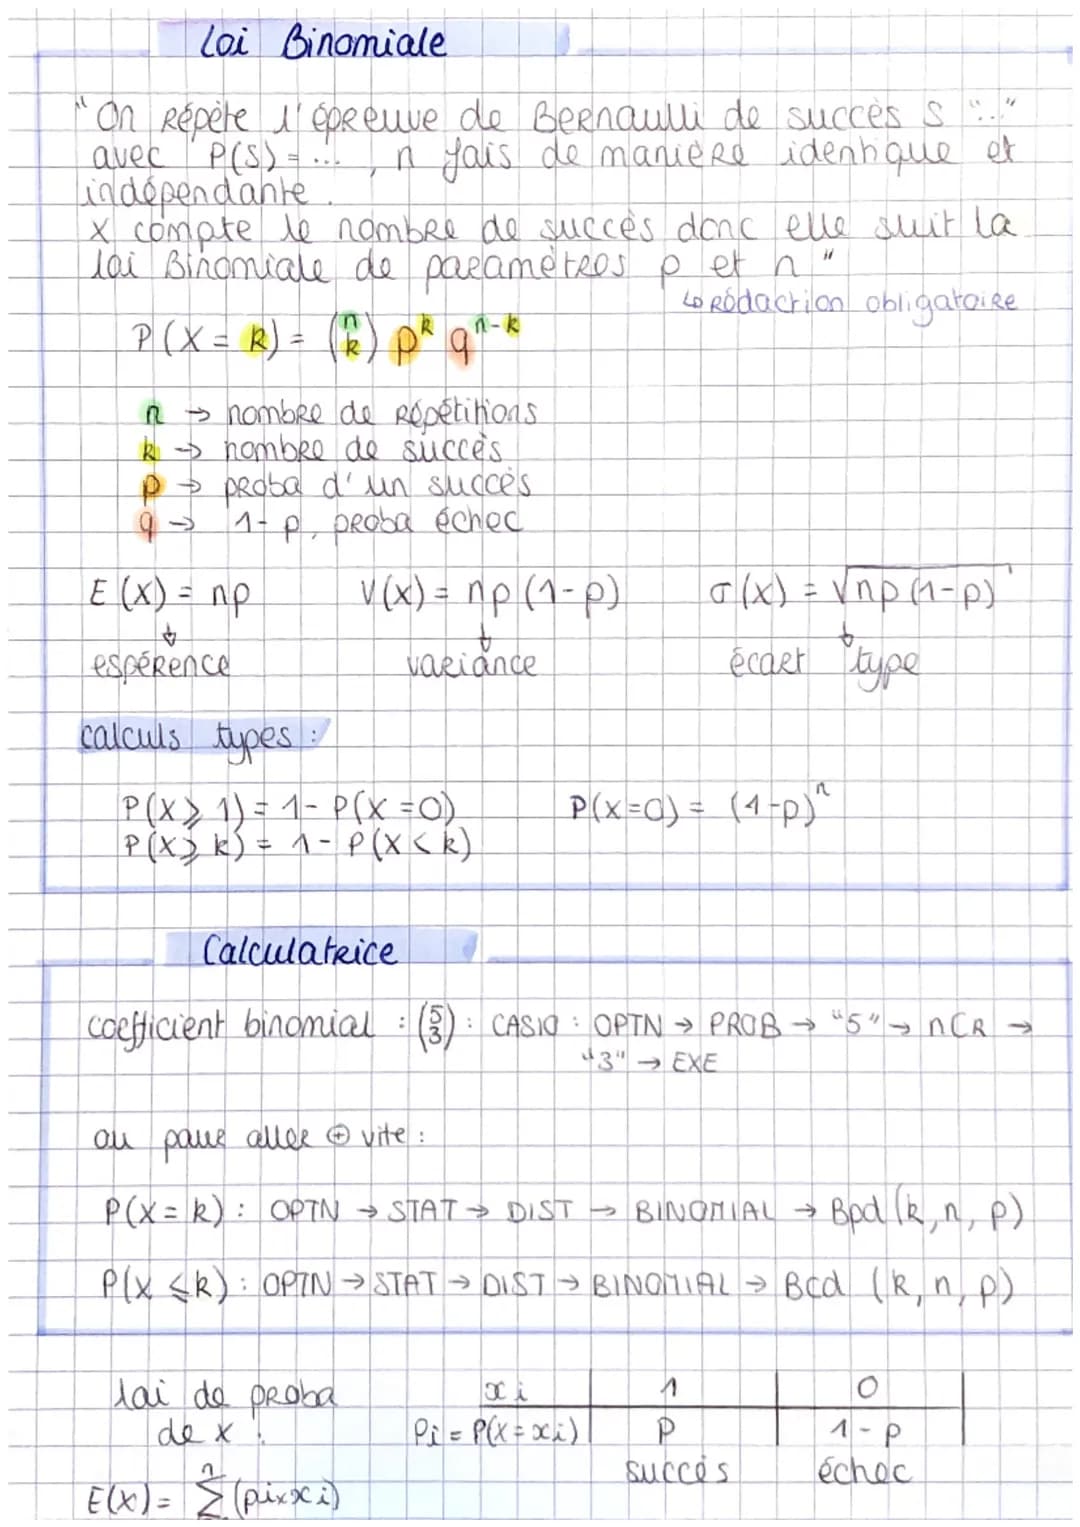 Loi Binomiale
"On répète l'épreuve de Bernaulli de succès S "..."
avec P(S) = ..., n fois de manière identique et
indépendante.
X compte le nombre de succès donc elle suit la
loi Binomiale de paramètres p et n "
↳ Rédaction obligatoire
P(X = k) = (n k) p^k q^(n-k)
n → nombre de répétitions
k → nombre de succès
p → proba d'un succès
q → 1-p, proba échec
E(X) = np V(x) = np(1-p) σ(x) = √np(1-p)
espérence variance écart type
calculs types :
P(X ⩾ 1) = 1 - P(X = 0) P(x=0) = (1-p)^n
P(X ⩾ k) = 1 - P(X < k)
Calculatrice
coefficient binomial : (5 3) : CASIO : OPTN → PROB → "5" → nCR →
"3" → EXE
ou pour aller ⊕ vite :
P(X = k) : OPTN → STAT → DIST → BINOMIAL → Bpd (k, n, p)
P(X ⩽ k) : OPTN → STAT → DIST → BINOMIAL → Bcd (k, n, p)
loi de proba xi 1 0
de x : Pi = P(X = xi) p 1-p
succès échec
E(X) = n Σ (pi × xi)